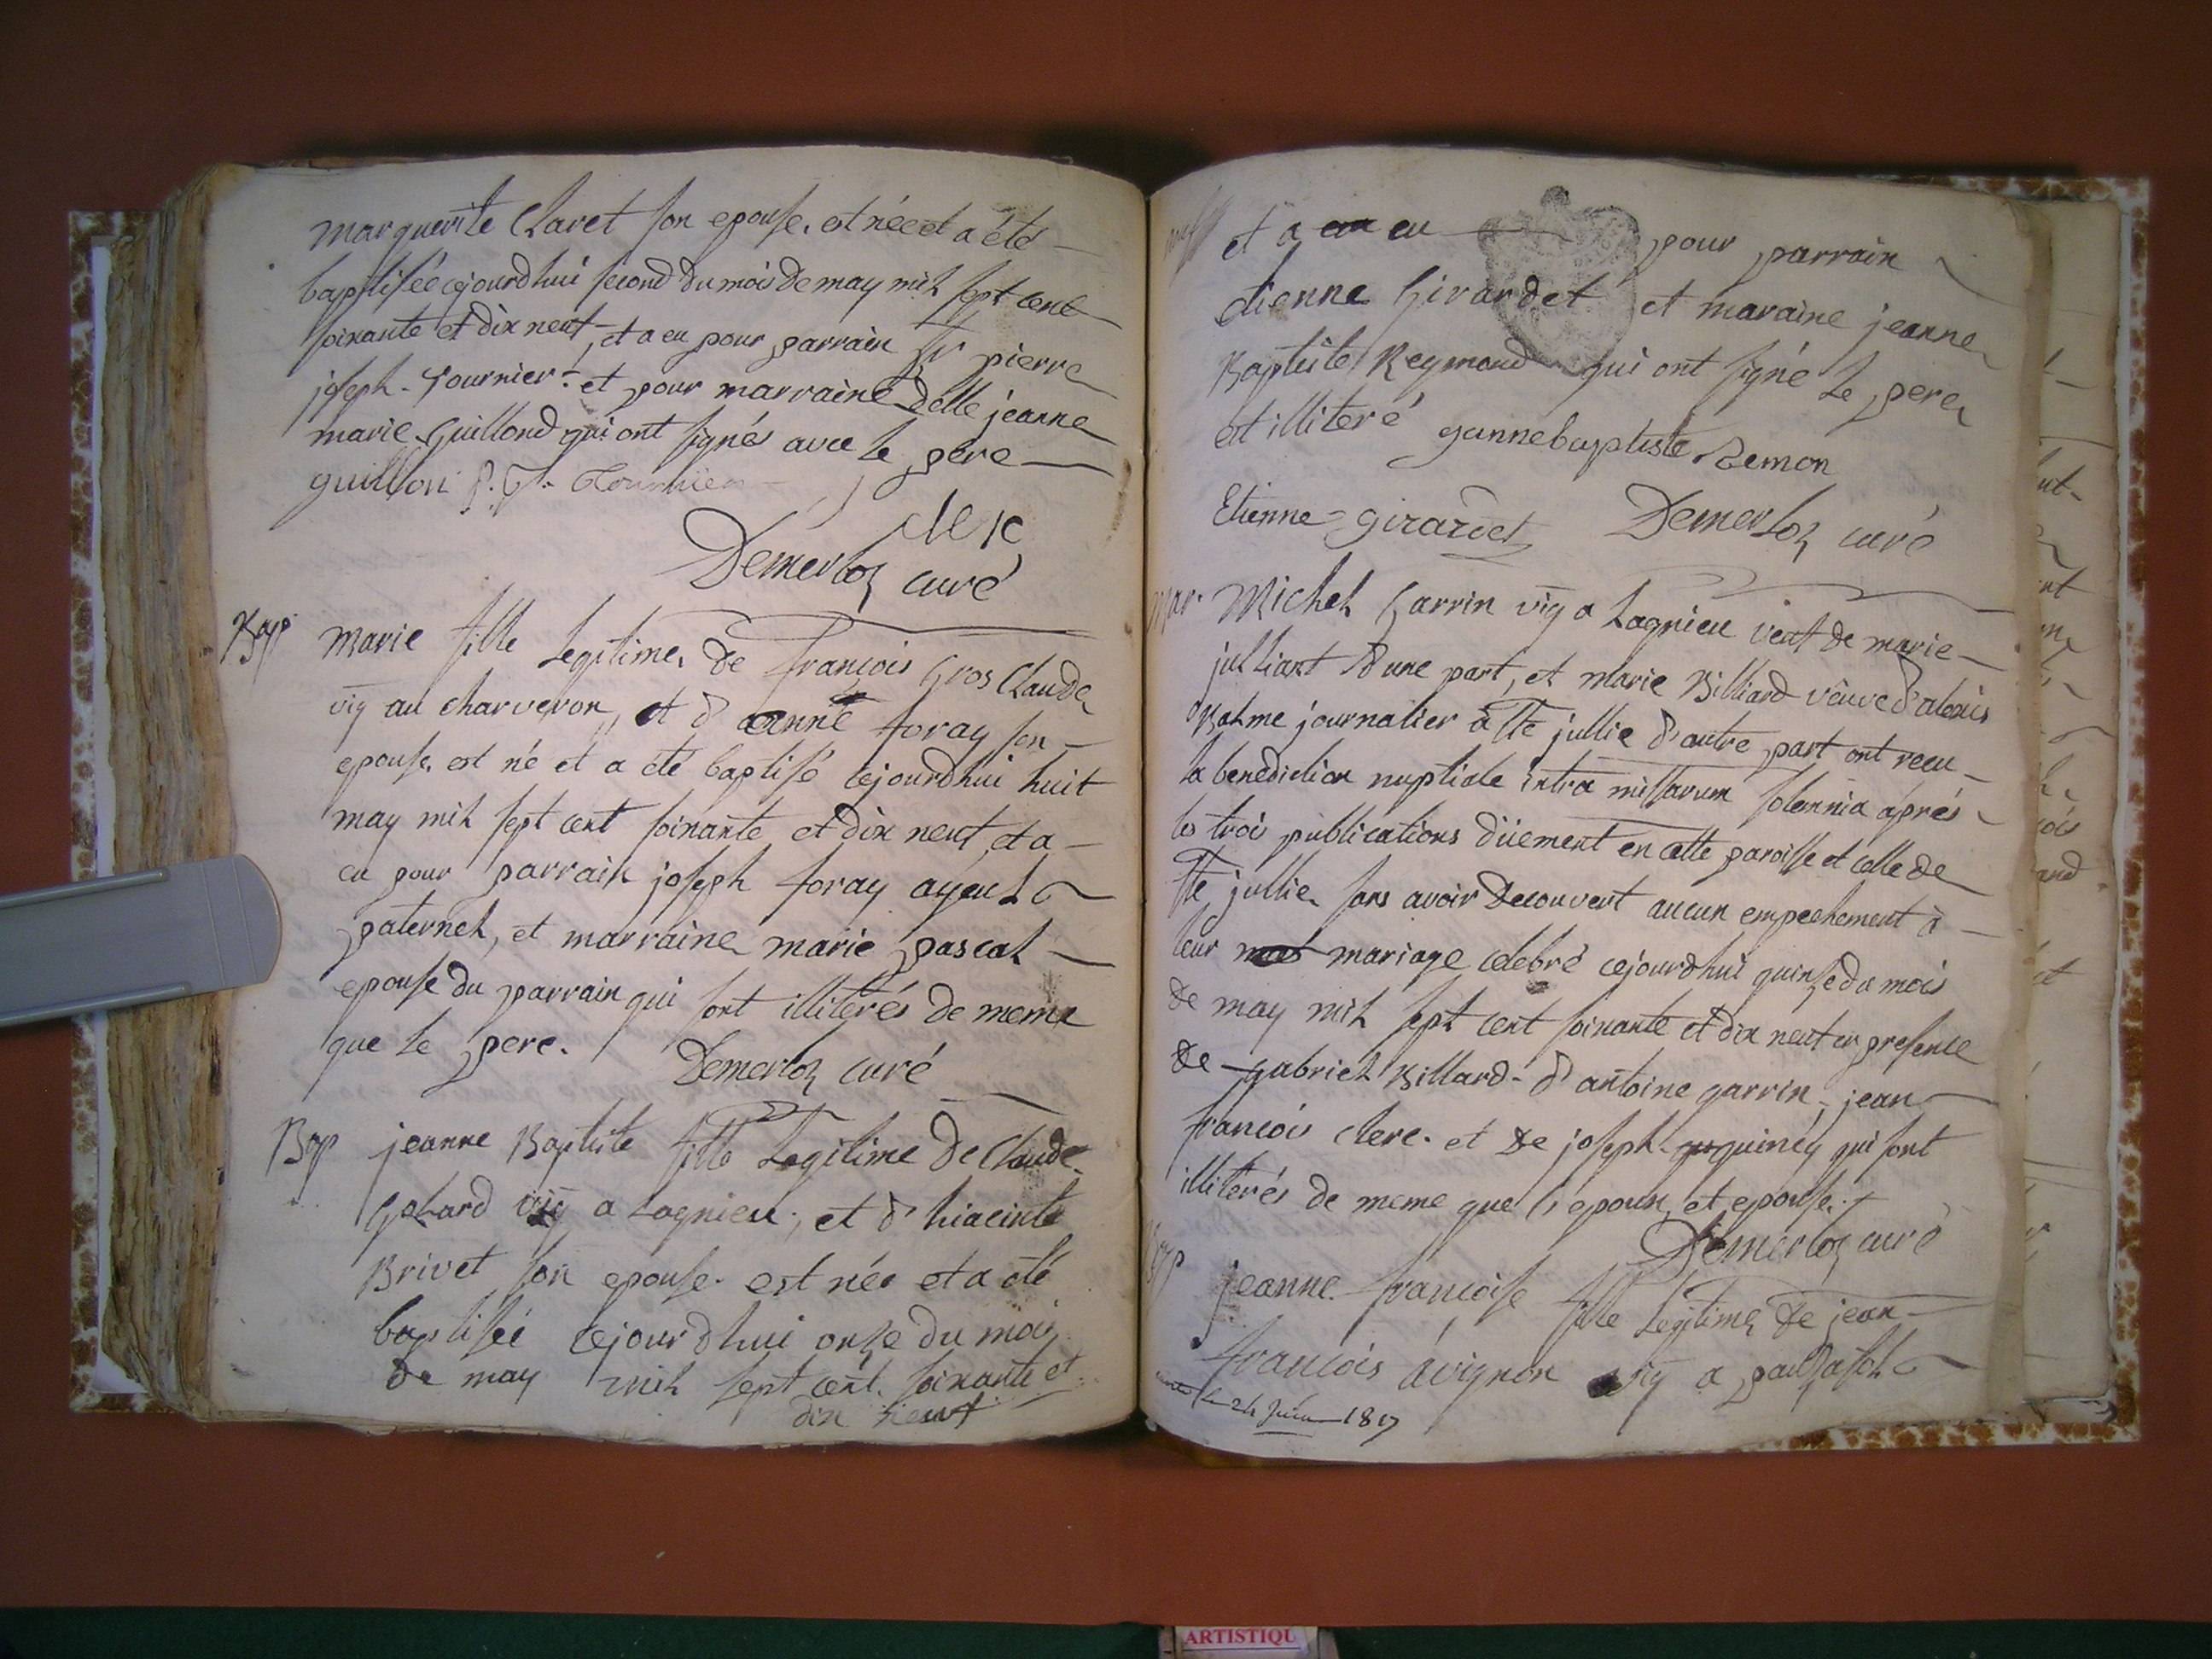 marguerite Claret son epouse. est née et a étés
baptisée cejourd'hui second du mois de may mil sept cent
soixante et dix neuf, et a eu pour parrain Sr pierre
joseph fournier: et pour marraine delle jeanne
marie Guillond qui ont signés avec le pere
guillon p. J. Tournier
Demerloz curé
Bap
marie fille Legitime de françois Gros Claude
vig au charveron, et d'anne foray son
epouse. est né et a été baptisé cejourd'hui huit
may mil sept cent soixante et dix neuf, et a
eu pour parrain joseph foray ayeul
paternel, et marraine marie pascal
epouse du parrain qui sont illitérés de meme
que le pere. Demerloz curé
Bap
jeanne Baptiste fille Legitime de Claude
Golard vig a Lagnieu, et d'hiacinte
Brivet son epouse. est née et a été
baptisée cejourd'hui onze du mois
de may mil sept cent. soixante et
dix neuf
et a eu pour parrain
etienne Girardet et maraine jeanne
Baptiste Reymond qui ont signé le pere
est illiteré gannebaptiste Remon
Etienne girardet Demerloz curé
mar.
Michel Garrin vig a Lagnieu veuf de marie
julliart d'une part, et marie Billiard veuve d'alexis
Balme journalier a Ste jullie d'autre part ont reçu
la benediction nuptiale intra missarum solemnia aprés
les trois publications düement en cette paroisse et celle de
Ste jullie. sans avoir decouvert aucun empechement à
leur mariage celebré cejourd'hui quinze du mois
de may mil sept cent soixante et dix neuf en presence
de gabriel Billard- d'antoine garrin, jean
francois clerc. et de joseph quiney qui sont
illitérés de meme que les epoux et epouse.
Demerloz curé
Bap
jeanne francoise fille Legitime de jean
francois avignon vig a
le 24 Juin 1817
ARTISTIQU